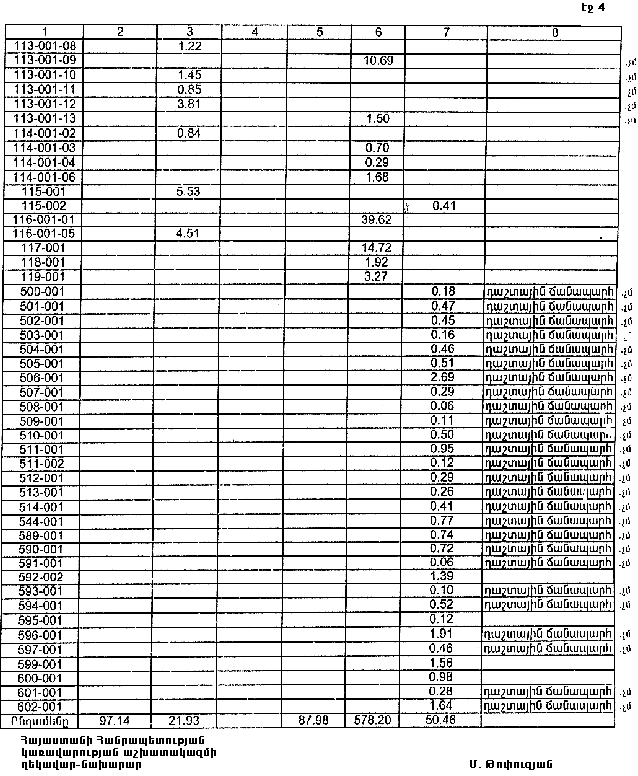 Էջ 4
1 2 3 4 5 6 7 8
113-001-08 1.22
113-001-09 10.69
113-001-10 1.45
113-001-11 0.85
113-001-12 3.81
113-001-13 1.50
114-001-02 0.84
114-001-03 0.70
114-001-04 0.29
114-001-06 1.68
115-001 5.53
115-002 0.41
116-001-01 39.62
116-001-05 4.51
117-001 14.72
118-001 1.92
119-001 3.27
500-001 0.18 դաշտային ճանապարհ
501-001 0.47 դաշտային ճանապարհ
502-001 0.45 դաշտային ճանապարհ
503-001 0.16 դաշտային ճանապարհ
504-001 0.46 դաշտային ճանապարհ
505-001 0.51 դաշտային ճանապարհ
506-001 2.69 դաշտային ճանապարհ
507-001 0.29 դաշտային ճանապարհ
508-001 0.06 դաշտային ճանապարհ
509-001 0.11 դաշտային ճանապարհ
510-001 0.50 դաշտային ճանապարհ
511-001 0.95 դաշտային ճանապարհ
511-002 0.12 դաշտային ճանապարհ
512-001 0.29 դաշտային ճանապարհ
513-001 0.26 դաշտային ճանապարհ
514-001 0.41 դաշտային ճանապարհ
544-001 0.77 դաշտային ճանապարհ
589-001 0.74 դաշտային ճանապարհ
590-001 0.72 դաշտային ճանապարհ
591-001 0.06 դաշտային ճանապարհ
592-002 1.39
593-001 0.10 դաշտային ճանապարհ
594-001 0.52 դաշտային ճանապարհ
595-001 0.12
596-001 1.91 դաշտային ճանապարհ
597-001 0.46 դաշտային ճանապարհ
599-001 1.56
600-001 0.98
601-001 0.28 դաշտային ճանապարհ
602-001 1.64 դաշտային ճանապարհ
Ընդամենը 97.14 21.93 87.98 578.20 50.46
Հայաստանի Հանրապետության
կառավարության աշխատակազմի
ղեկավար-նախարար Մ. Թոփուզյան